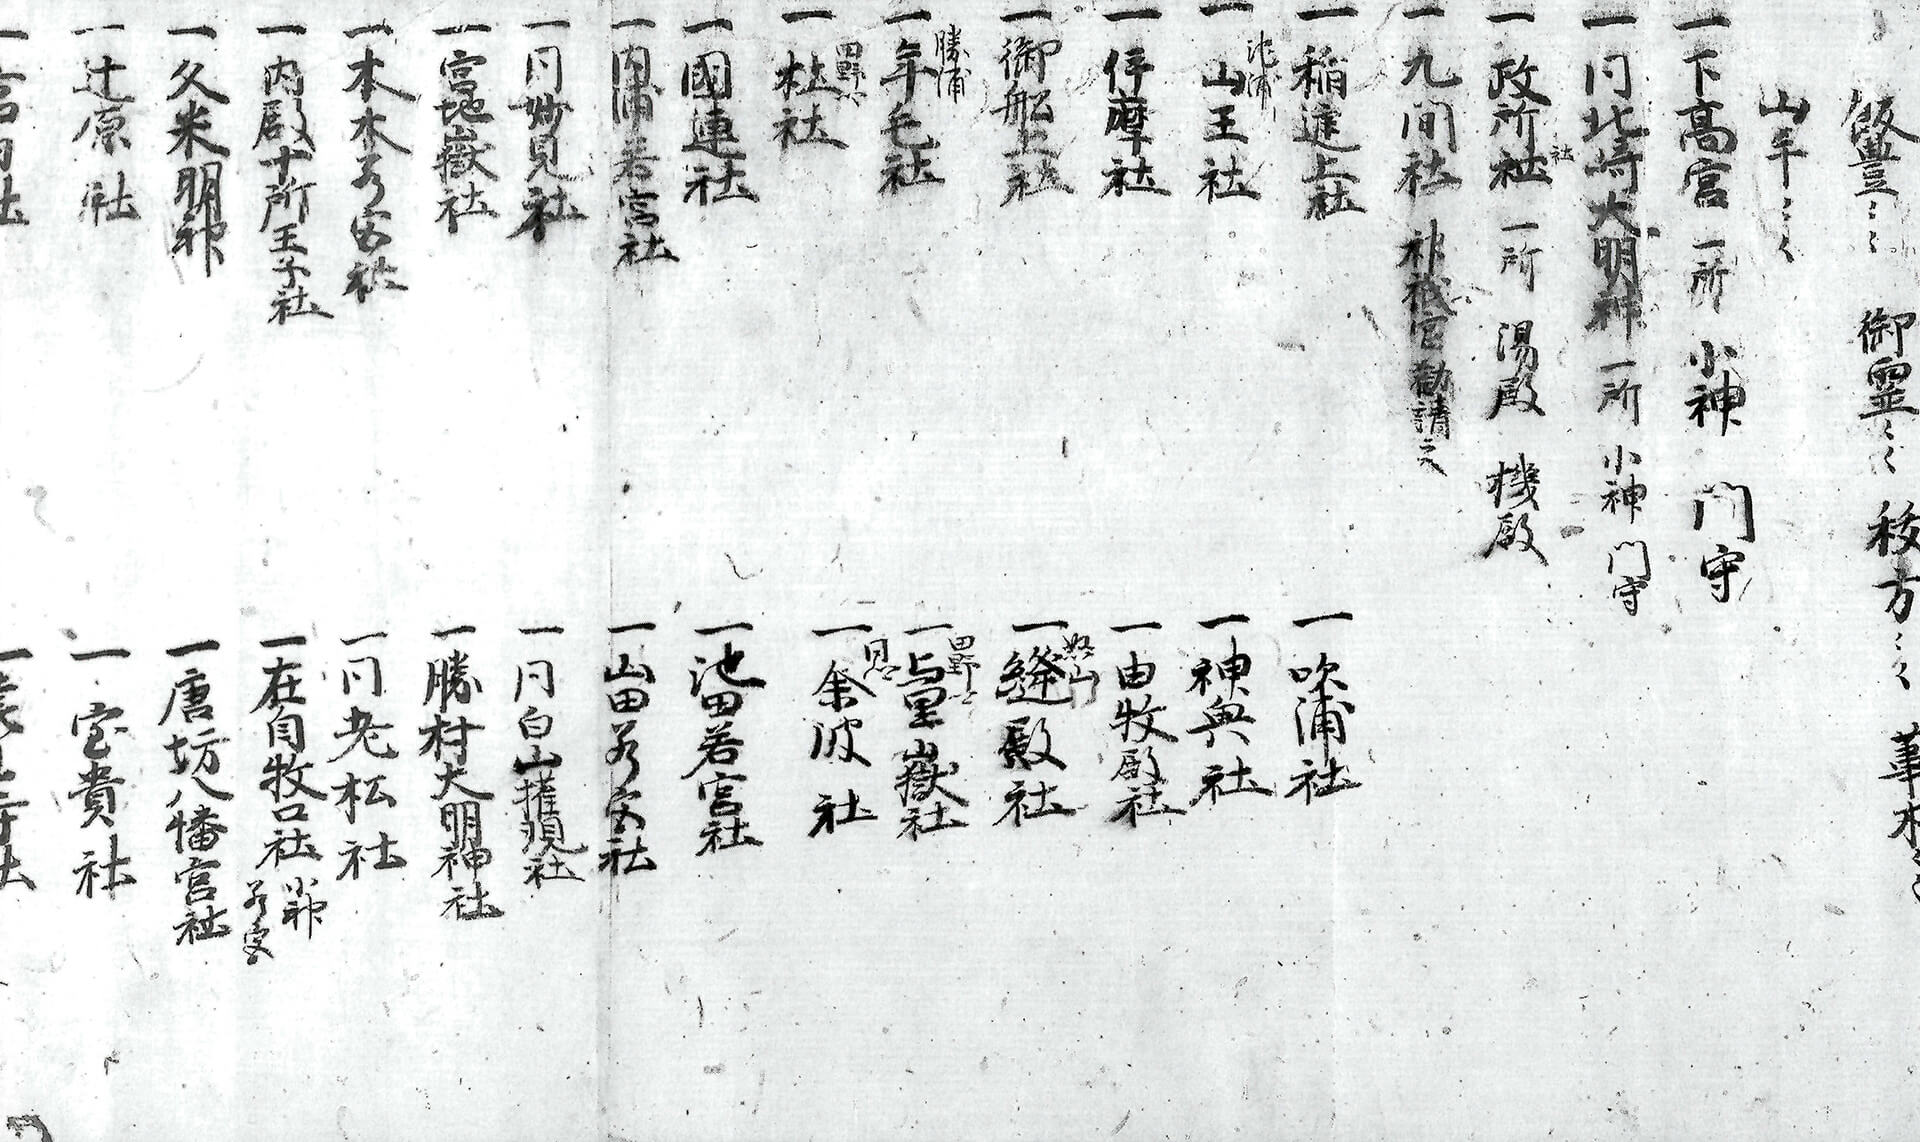 飯豊〻〻 御霊〻〻 秡方〻〻 葦木〻〻
山午〻〻
一下高宮 一所 小神 門守
一同北崎大明神 一所 小神 門守
一政所社 社 一所 湯殿 機殿
一九間社 神祇官勧請之
一稲庭上社
一山王社 池浦
一伊摩社
一御船上社
一年毛社 勝浦
一杜社 田野〻
一國連社
一内浦若宮社
一同妙見社
一宮地嶽社
一本木若宮社
一内殿十所王子社
一久米明神
一辻原社
一吹浦社
一神輿社
一由牧殿社
一縫殿社 奴山
一与里嶽社 田野〻
一余波社 同
一池田若宮社
一山田若宮社
一同白山権現社
一勝村大明神社
一同老松社
一在自牧口社 小神 若宮
一唐坊八幡宮社
一宝貴社